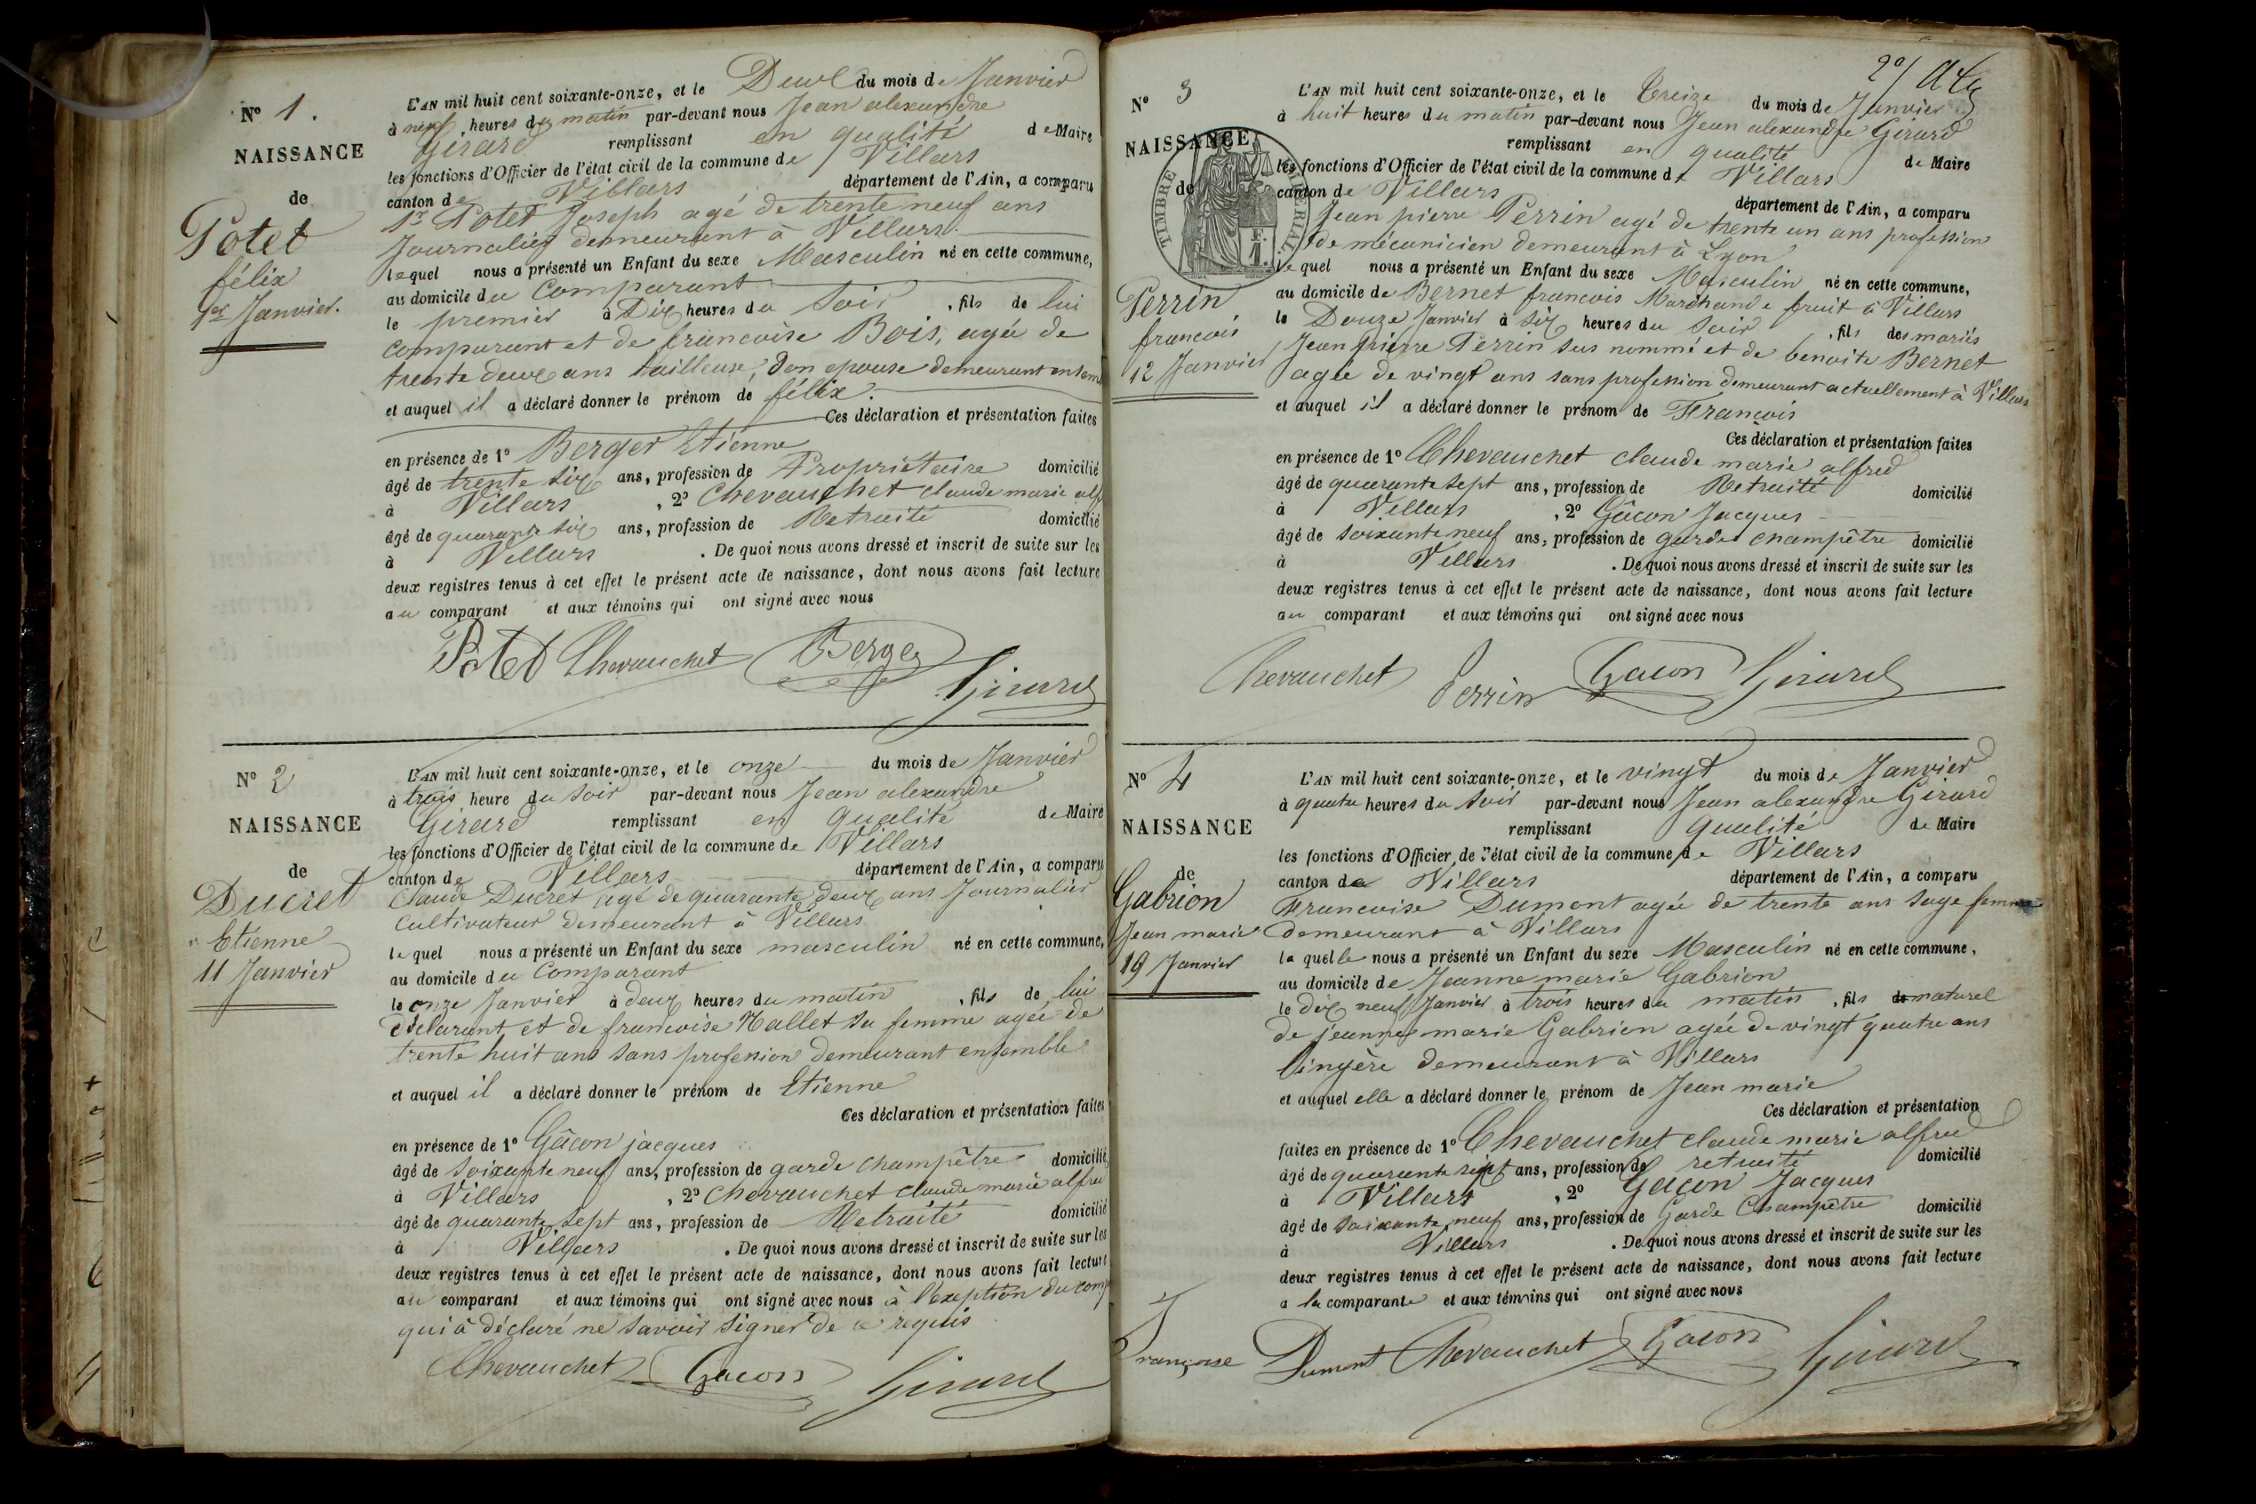 N° 1.
NAISSANCE
de
Potet
félix
1er Janvier.
L'AN mil huit cent soixante-onze, et le Deux du mois de Janvier
à neuf heures du matin par-devant nous Jean alexandre
Girard remplissant en qualité de Maire
les fonctions d'Officier de l'état civil de la commune de Villars
canton de Villars département de l'Ain, a comparu
Potet Joseph agé de trente neuf ans
Journalier demeurant à Villars.
lequel nous a présenté un Enfant du sexe Masculin né en cette commune,
au domicile du Comparant
le premier à Dix heures du Soir, fils de lui
comparant et de francoise Bois, agée de
trente deux ans tailleuse, Son epouse demeurant ensem
et auquel il a déclaré donner le prénom de félix.
Ces déclaration et présentation faites
en présence de 1° Berger Etienne
âgé de trente six ans, profession de Propriétaire domicilié
à Villars, 2° Chevauchet claude marie alf
âgé de quarante six ans, profession de Retraité domicilié
à Villars. De quoi nous avons dressé et inscrit de suite sur les
deux registres tenus à cet effet le présent acte de naissance, dont nous avons fait lecture
au comparant et aux témoins qui ont signé avec nous
Potet Chevauchet Berger
Girard
N° 2
NAISSANCE
de
Ducret
Etienne
11 Janvier
L'AN mil huit cent soixante-onze, et le onze du mois de Janvier
à trois heure du soir par-devant nous Jean alexandre
Girard remplissant en qualité de Maire
les fonctions d'Officier de l'état civil de la commune de Villars
canton de Villars département de l'Ain, a comparu
Claude Ducret agé de quarante deux ans Journalier
Cultivateur demeurant à Villars
lequel nous a présenté un Enfant du sexe masculin né en cette commune,
au domicile du Comparant
le onze Janvier à deux heures du matin, fils de lui
déclarant et de francoise Mallet sa femme agée de
trente huit ans sans profession demeurant ensemble
et auquel il a déclaré donner le prénom de Etienne
Ces déclaration et présentation faites
en présence de 1° Gâcon jacques
âgé de Soixante neuf ans, profession de garde champêtre domicilié
à Villars, 2° Chevauchet claude marie alfre
âgé de quarante sept ans, profession de Retraité domicilié
à Villars. De quoi nous avons dressé et inscrit de suite sur les
deux registres tenus à cet effet le présent acte de naissance, dont nous avons fait lecture
au comparant et aux témoins qui ont signé avec nous à l'exeption du comp
qui à déclaré ne savoir signer de ce requis
Chevauchet Gacon Girard
2°/
N° 3
NAISSANCE
de
TIMBRE IMPÉRIAL
Perrin
francois
12 Janvier
L'AN mil huit cent soixante-onze, et le Treize du mois de Janvier
à huit heures du matin par-devant nous Jean alexandre Girard
remplissant en qualité de Maire
les fonctions d'Officier de l'état civil de la commune de Villars
canton de Villars département de l'Ain, a comparu
Jean pierre Perrin agé de trente un ans profession
de mécanicien demeurant à Lyon
le quel nous a présenté un Enfant du sexe Masculin né en cette commune,
au domicile de Bernet francois Marchand e fruit à Villars
le Douze Janvier à six heures du soir, fils des mariés
Jean pierre Perrin sus nommé et de benoite Bernet
agée de vingt ans sans profession demeurant actuellement à Villars
et auquel il a déclaré donner le prénom de Francois
Ces déclaration et présentation faites
en présence de 1° Chevauchet claude marie alfred
âgé de quarante sept ans, profession de Retraité domicilié
à Villars, 2° Gâcon Jacques
âgé de soixante neuf ans, profession de garde champêtre domicilié
à Villars. De quoi nous avons dressé et inscrit de suite sur les
deux registres tenus à cet effet le présent acte de naissance, dont nous avons fait lecture
au comparant et aux témoins qui ont signé avec nous
Chevauchet Perrin Gacon Girard
N° 4
NAISSANCE
de
Gabrion
Jean marie
19 Janvier
L'AN mil huit cent soixante-onze, et le vingt du mois de Janvier
à quatre heures du soir par-devant nous Jean alexandre Girard
remplissant qualité de Maire
les fonctions d'Officier de l'état civil de la commune de Villars
canton de Villars département de l'Ain, a comparu
Francoise Dumont agée de trente ans sage femme
demeurant à Villars
la quelle nous a présenté un Enfant du sexe Masculin né en cette commune,
au domicile de Jeanne marie Gabrion
le dix neuf Janvier à trois heures du matin, fils naturel
de jeanne marie Gabrion agée de vingt quatre ans
lingère demeurant à Villars
et auquel elle a déclaré donner le prénom de Jean marie
Ces déclaration et présentation
faites en présence de 1° Chevauchet claude marie alfred
âgé de quarante sept ans, profession de retraité domicilié
à Villars, 2° Gacon Jacques
âgé de soixante neuf ans, profession de Garde Champêtre domicilié
à Villars. De quoi nous avons dressé et inscrit de suite sur les
deux registres tenus à cet effet le présent acte de naissance, dont nous avons fait lecture
a la comparante et aux témoins qui ont signé avec nous
Françoise Dumont Chevauchet Gacon Girard